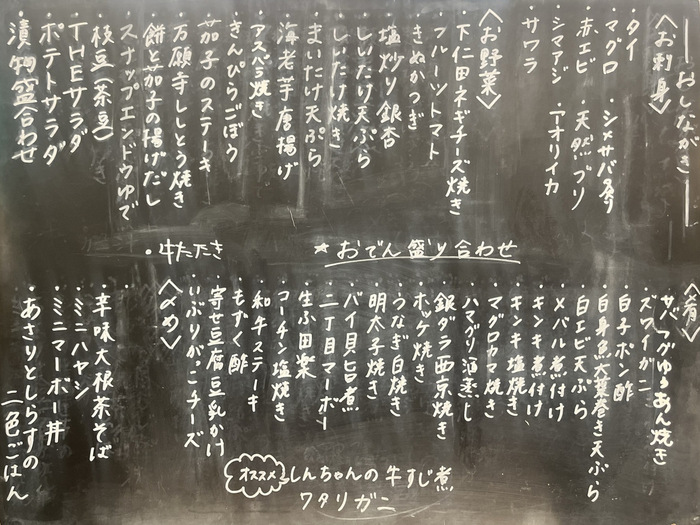 おしながき
〈お刺身〉
・タイ
・マグロ
・赤エビ
・シマアジ
・サワラ
・シメサバ炙り
・天然ブリ
・アオリイカ
〈お野菜〉
・下仁田ネギチーズ焼き
・フルーツトマト
・きぬかつぎ
・塩炒り銀杏
・しいたけ天ぷら
・しいたけ焼き
・まいたけ天ぷら
・海老芋唐揚げ
・アスパラ焼き
・きんぴらごぼう
・茄子のステーキ
・万願寺ししとう焼き
・餅と茄子の揚げだし
・スナップエンドウゆで
・枝豆(茶豆)
・THEサラダ
・ポテトサラダ
・漬物盛合わせ
★おでん盛り合わせ
・牛たたき
〈肴〉
・サバフグゆうあん焼き
・ズワイガニ
・白子ポン酢
・白身魚大葉巻き天ぷら
・白エビ天ぷら
・メバル煮付け
・キンキ煮付け
・キンキ塩焼き
・マグロカマ焼き
・ハマグリ酒蒸し
・銀ダラ西京焼き
・ホッケ焼き
・うなぎ白焼き
・明太子焼き
・バイ貝旨煮
・二丁目マーボー
・生ふ田楽
・コーチン塩焼き
・和牛ステーキ
・もずく酢
・寄せ豆腐豆乳がけ
・いぶりがっこチーズ
〈〆め〉
・辛味大根茶そば
・ミニハヤシ
・ミニマーボー丼
・あさりとしらすの
二色ごはん
オススメ
しんちゃんの牛すじ煮
ワタリガニ